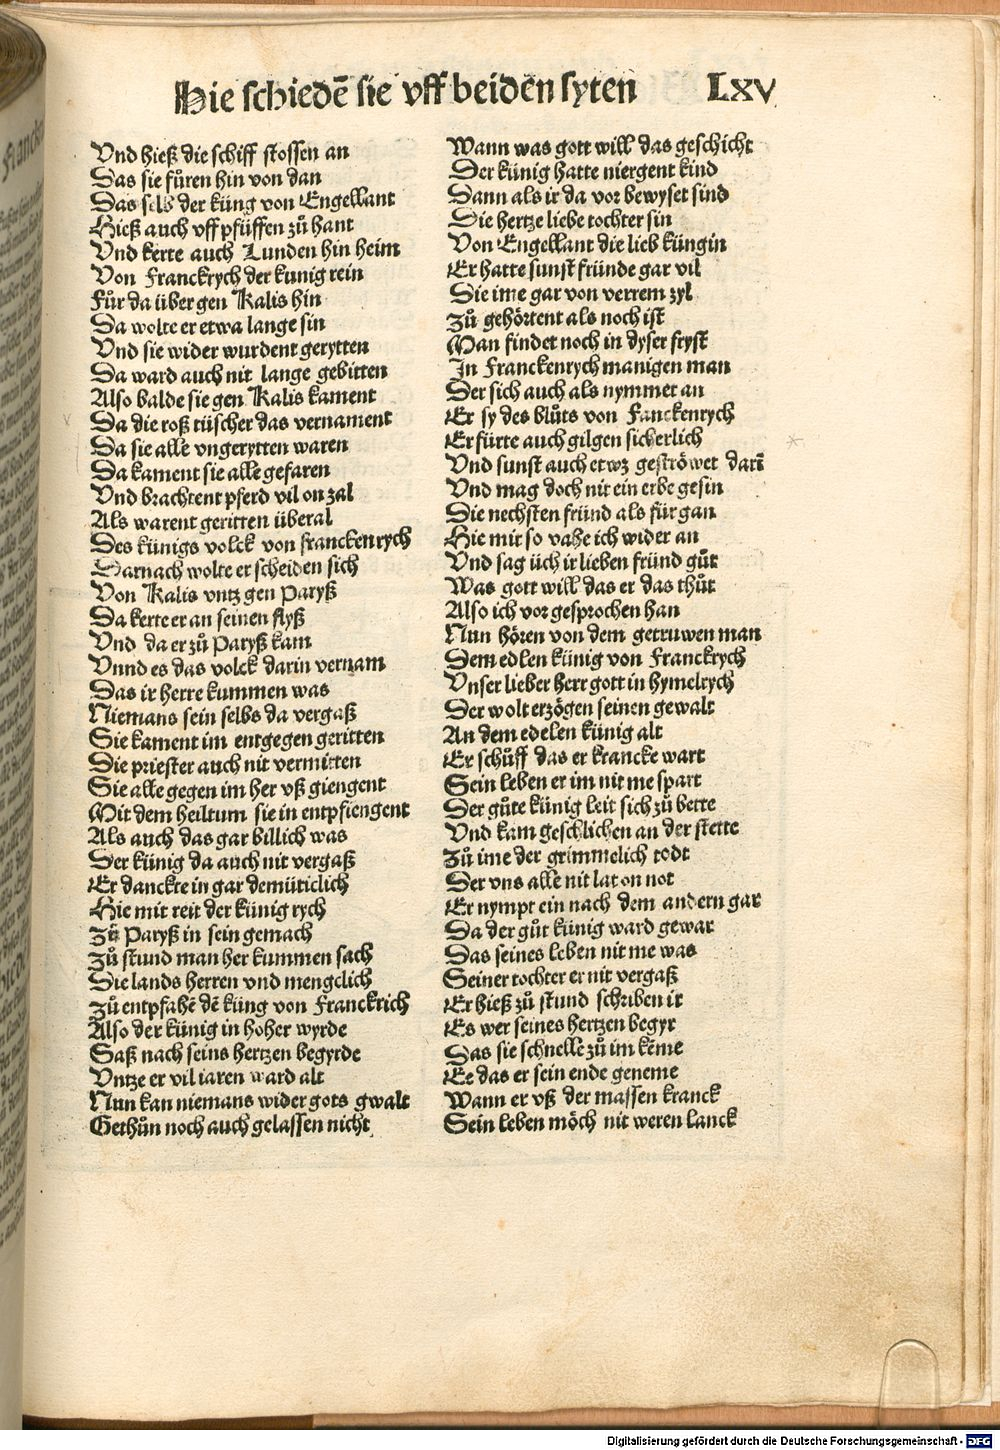 Hie schiedē sie vff beiden syten LXV
Vnd hieß die schiff stossen an
Das sie fůren hin von dan
Das selb der küng von Engellant
Hieß auch vff pfüffen zů hant
Vnd kerte auch Lunden hin heim
Von Franckrych der kunig rein
Fůr da über gen Kalis hin
Da wolte er etwa lange sin
Vnd sie wider wurdent gerytten
Da ward auch nit lange gebitten
Also balde sie gen Kalis kament
Da die roß tüscher das vernament
Da sie alle vngerytten waren
Da kament sie alle gefaren
Vnd brachtent pferd vil on zal
Als warent geritten überal
Des künigs volck von franckenrych
Darnach wolte er scheiden sich
Von Kalis vntz gen Paryß
Da kerte er an seinen flyß
Vnd da er zů Paryß kam
Vnnd es das volck darin vernam
Das ir herre kummen was
Niemans sein selbs da vergaß
Sie kament im entgegen geritten
Die priester auch nit vermitten
Sie alle gegen im her vß giengent
Mit dem heiltum sie in entpfiengent
Als auch das gar billich was
Der künig da auch nit vergaß
Er danckte in gar demüticlich
Hie mit reit der künig rych
Zů Paryß in sein gemach
Zů stund man her kummen sach
Die lands herren vnd mengclich
Zů entpfahē dē küng von Franckrich
Also der künig in hoher wyrde
Saß nach seins hertzen begyrde
Vntze er vil iaren ward alt
Nun kan niemans wider gots gwalt
Gethůn noch auch gelassen nicht
Wann was gott will das geschicht
Der künig hatte niergent kind
Dann als ir da vor bewyset sind
Die hertze liebe tochter sin
Von Engellant die lieb küngin
Er hatte sunst fründe gar vil
Die ime gar von verrem zyl
Zů gehörtent als noch ist
Man findet noch in dyser fryst
In Franckenrych manigen man
Der sich auch als nymmet an
Er sy des blůts von Fanckenrych
Er fürte auch gilgen sicherlich
Vnd sunst auch etwz geströwet darī
Vnd mag doch nit ein erbe gesin
Die nechsten fründ als für gan
Hie mit so vahe ich wider an
Vnd sag üch ir lieben fründ gůt
Was gott will das er das thůt
Also ich vor gesprochen han
Nun hören von dem getruwen man
Dem edlen künig von Franckrych
Vnser lieber herr gott in hymelrych
Der wolt erzögen seinen gewalt
An dem edelen künig alt
Er schůff das er krancke wart
Sein leben er im nit me spart
Der gůte künig leit sich zů bette
Vnd kam geschlichen an der stette
Zů ime der grimmelich todt
Der vns alle nit lat on not
Er nympt ein nach dem andern gar
Da der gůt künig ward gewar
Das seines leben nit me was
Seiner tochter er nit vergaß
Er hieß zů stund schriben ir
Es wer seines hertzen begyr
Das sie schnelle zů im kēme
Ee das er sein ende geneme
Wann er vß der massen kranck
Sein leben möch nit weren lanck
Digitalisierung gefördert durch die Deutsche Forschungsgemeinschaft - DFG